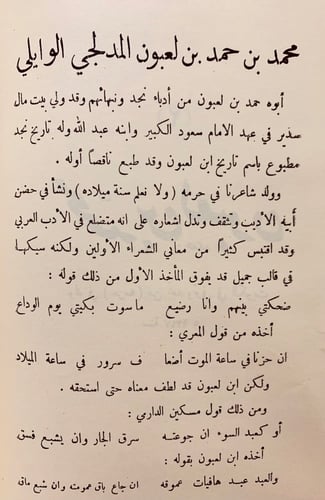 محمد بن حمد بن لعبون المدلجي الوايلي
أبوه حمد بن لعبون من أدباء نجد ونبهائهم وقد ولي بيت مال
سدير في عهد الامام سعود الكبير وابنه عبد الله وله تاريخ نجد
مطبوع باسم تاريخ ابن لعبون وقد طبع ناقصاً أوله .
وولد شاعرنا في حرمه ( ولا نعلم سنة ميلاده ) ونشأ في حضن
أبيه الأديب وتثقف وتدل اشعاره على انه متضلع في الأدب العربي
وقد اقتبس كثيراً من معاني الشعراء الأولين ولكنه سبكها
في قالب جميل قد يفوق المأخذ الأول من ذلك قوله :
ضحكتي بينهم وانا رضيع ماسوت بكيتي يوم الوداع
أخذه من قول المعري :
ان حزنا في ساعة الموت أضعا ف سرور في ساعة الميلاد
ولكن ابن لعبون قد لطف معناه حتى استحقه .
ومن ذلك قول مسكين الداري :
أو كعبد السوء ان جوعته سرق الجار وان يشبع فسق
أخذه ابن لعبون بقوله :
والعبد عبد هافيات عموقه ان جاع باق عموت وان شبع ماق